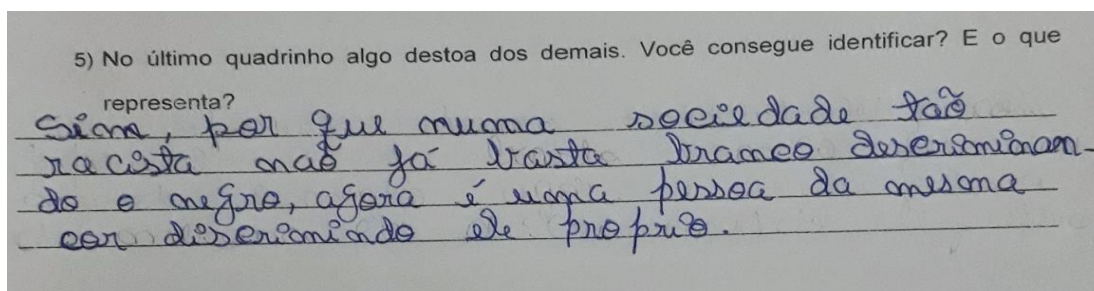 5) No último quadrinho algo destoa dos demais. Você consegue identificar? E o que
representa?
Sim, por que numa sociedade tão
racista não já basta branco descriminan-
do o negro, agora é uma pessoa da mesma
cor discrimindo ele proprio.